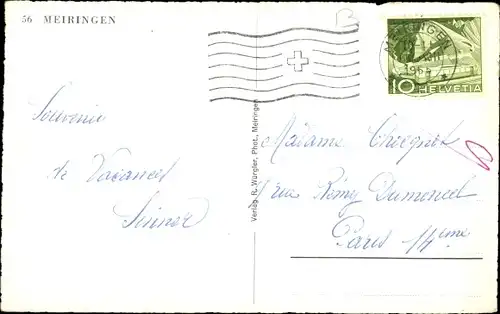 56 MEIRINGEN
MEIRINGEN
10 HELVETIA
Souvenir
de Vacances
Verlag R. Würgler, Phot., Meiringen
Madame
Rémy Dumoncel
Paris 14ème